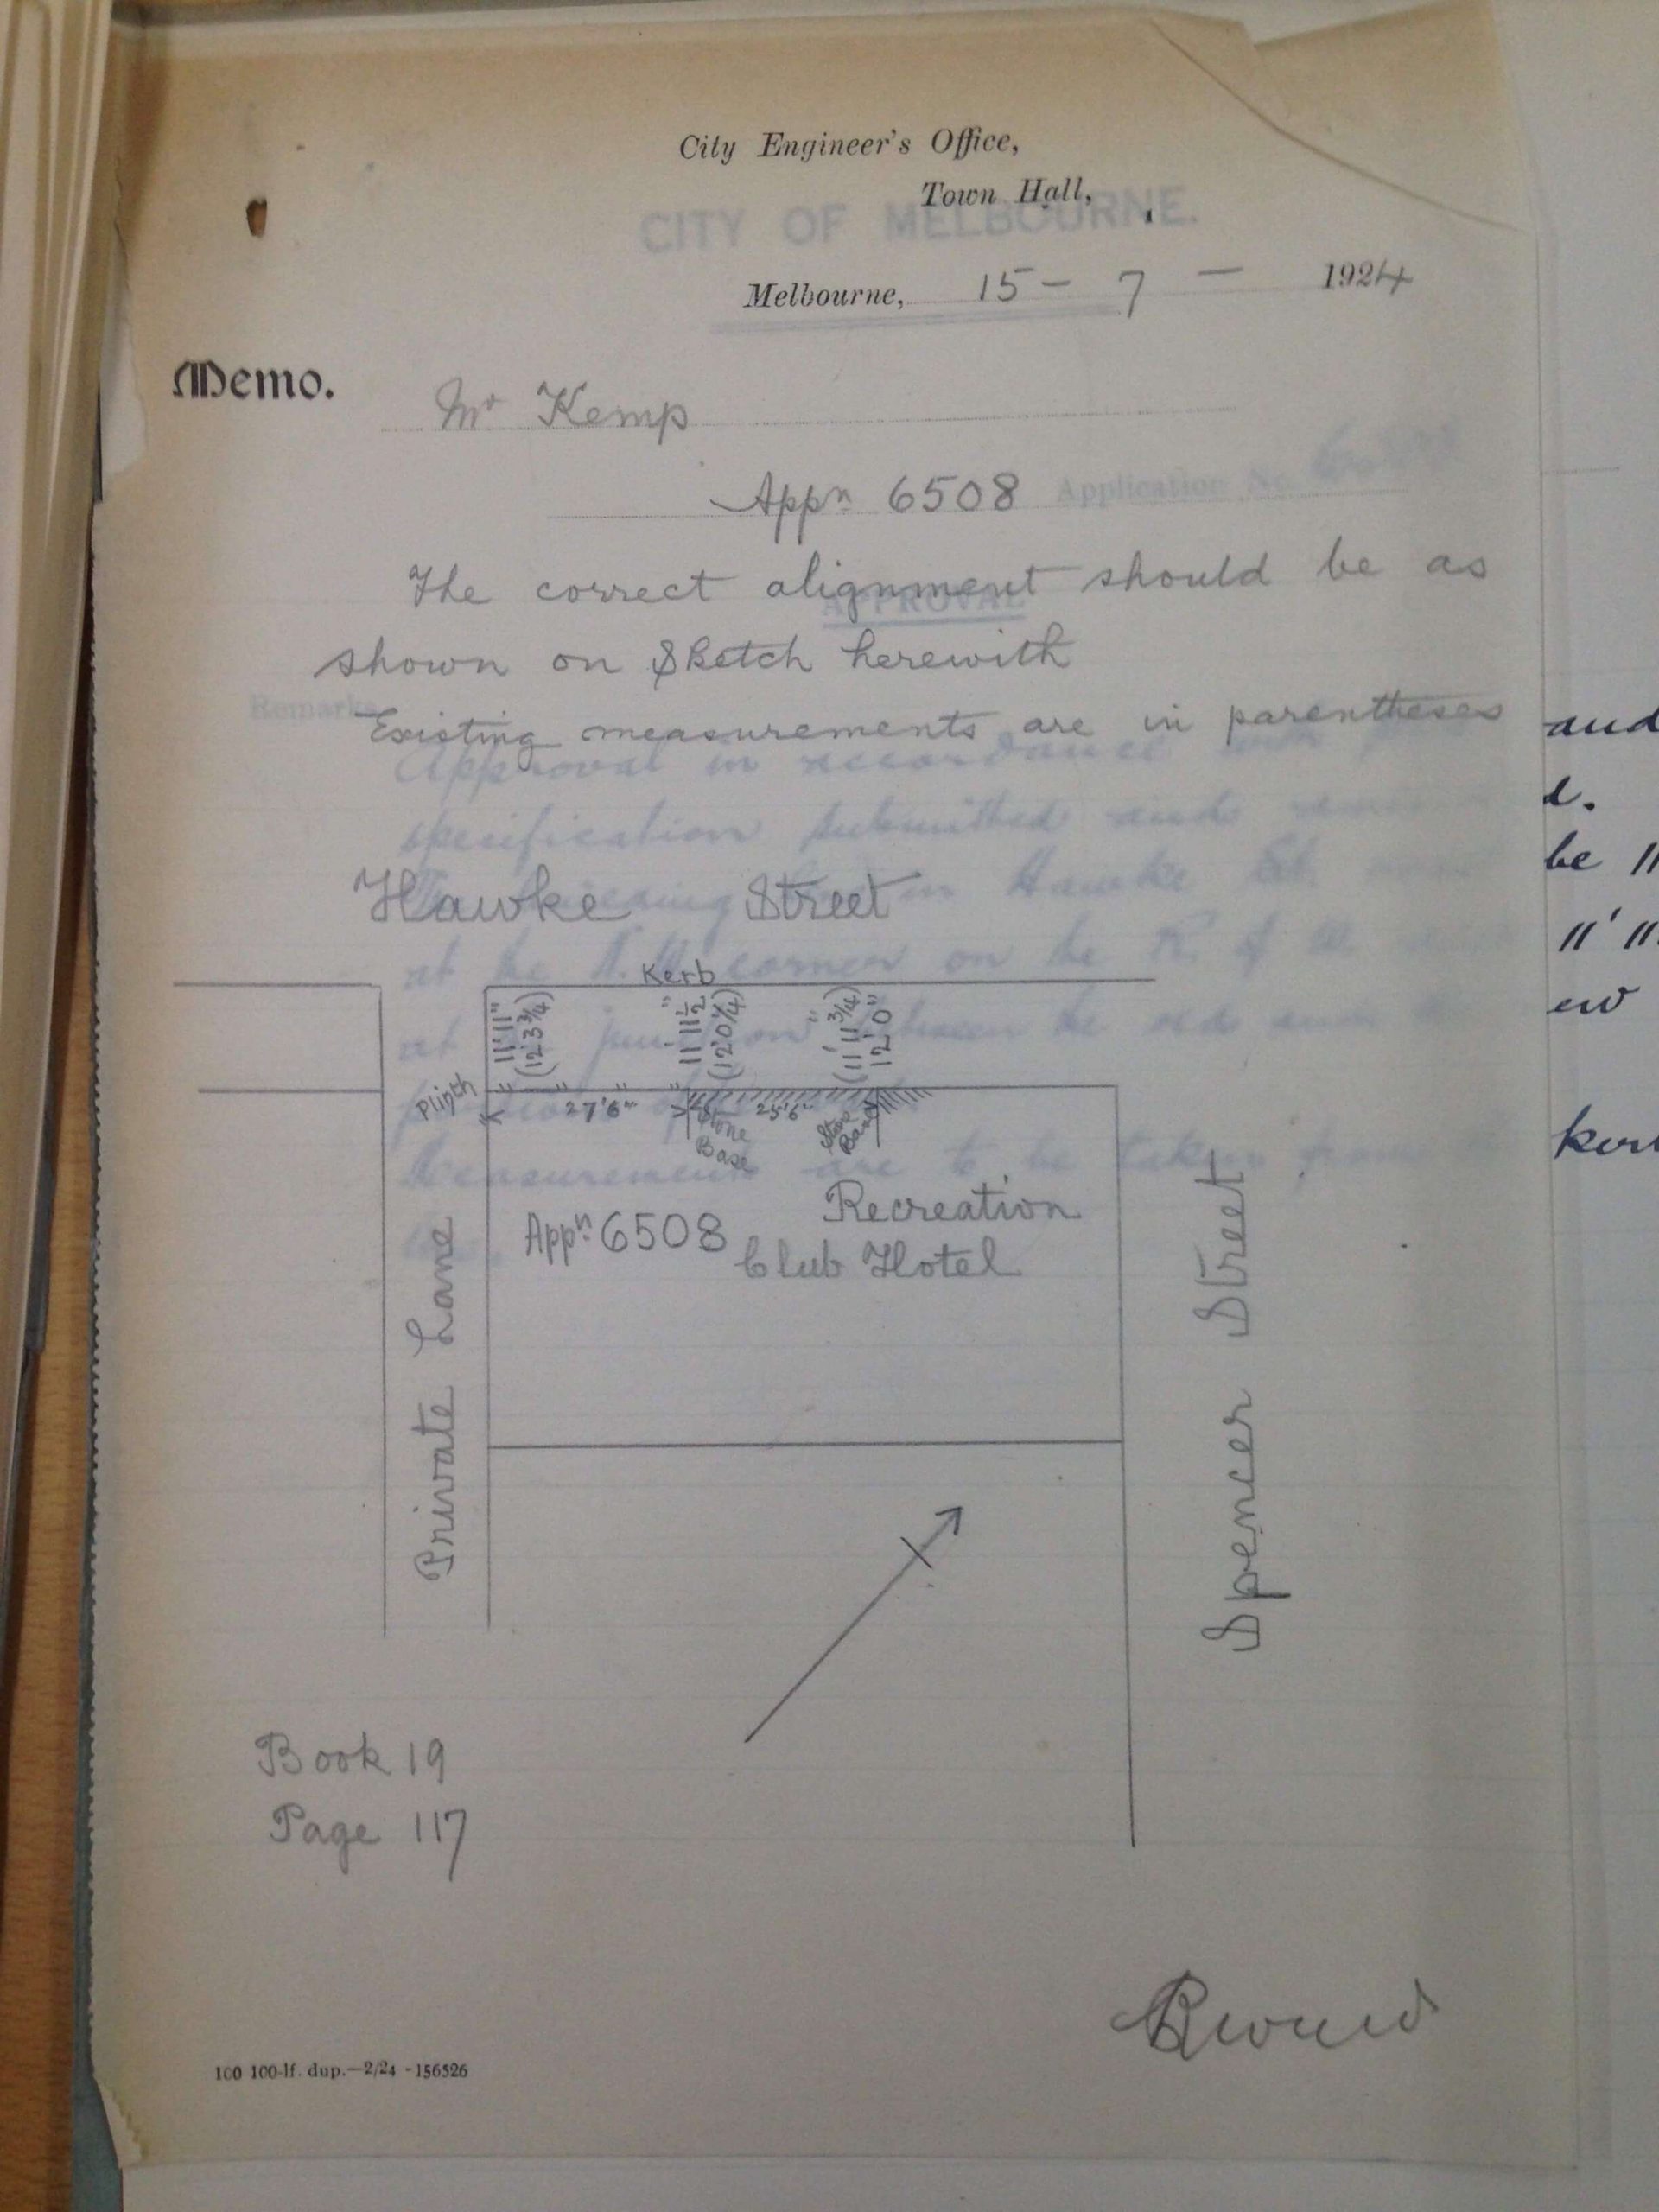 City Engineer's Office,
Town Hall,
CITY OF MELBOURNE.
Melbourne, 15 - 7 - 1924
Memo.
Mr Kemp
Appn 6508
Application No.
The correct alignment should be as
APPROVAL
shown on Sketch herewith
Remarks
Existing measurements are in parentheses
Approval in accordance with
specification submitted and
Hawke Street
in Hawke St.
at the corner on the R. of W.
Kerb
11' 11"
(12' 3 3/4)
11' 11 1/2"
(12' 0 1/4)
(11' 11 3/4)"
12' 0"
at junction between the old and
Plinth
27' 6"
25' 6"
Stone
Base
Stone
Base
Measurements are to be taken from
Recreation
Appn 6508
Club Hotel
Private Lane
Spencer Street
Book 19
Page 117
100 100-lf. dup.—2/24 -156526
and
d.
be 11
11' 11
ew
ker